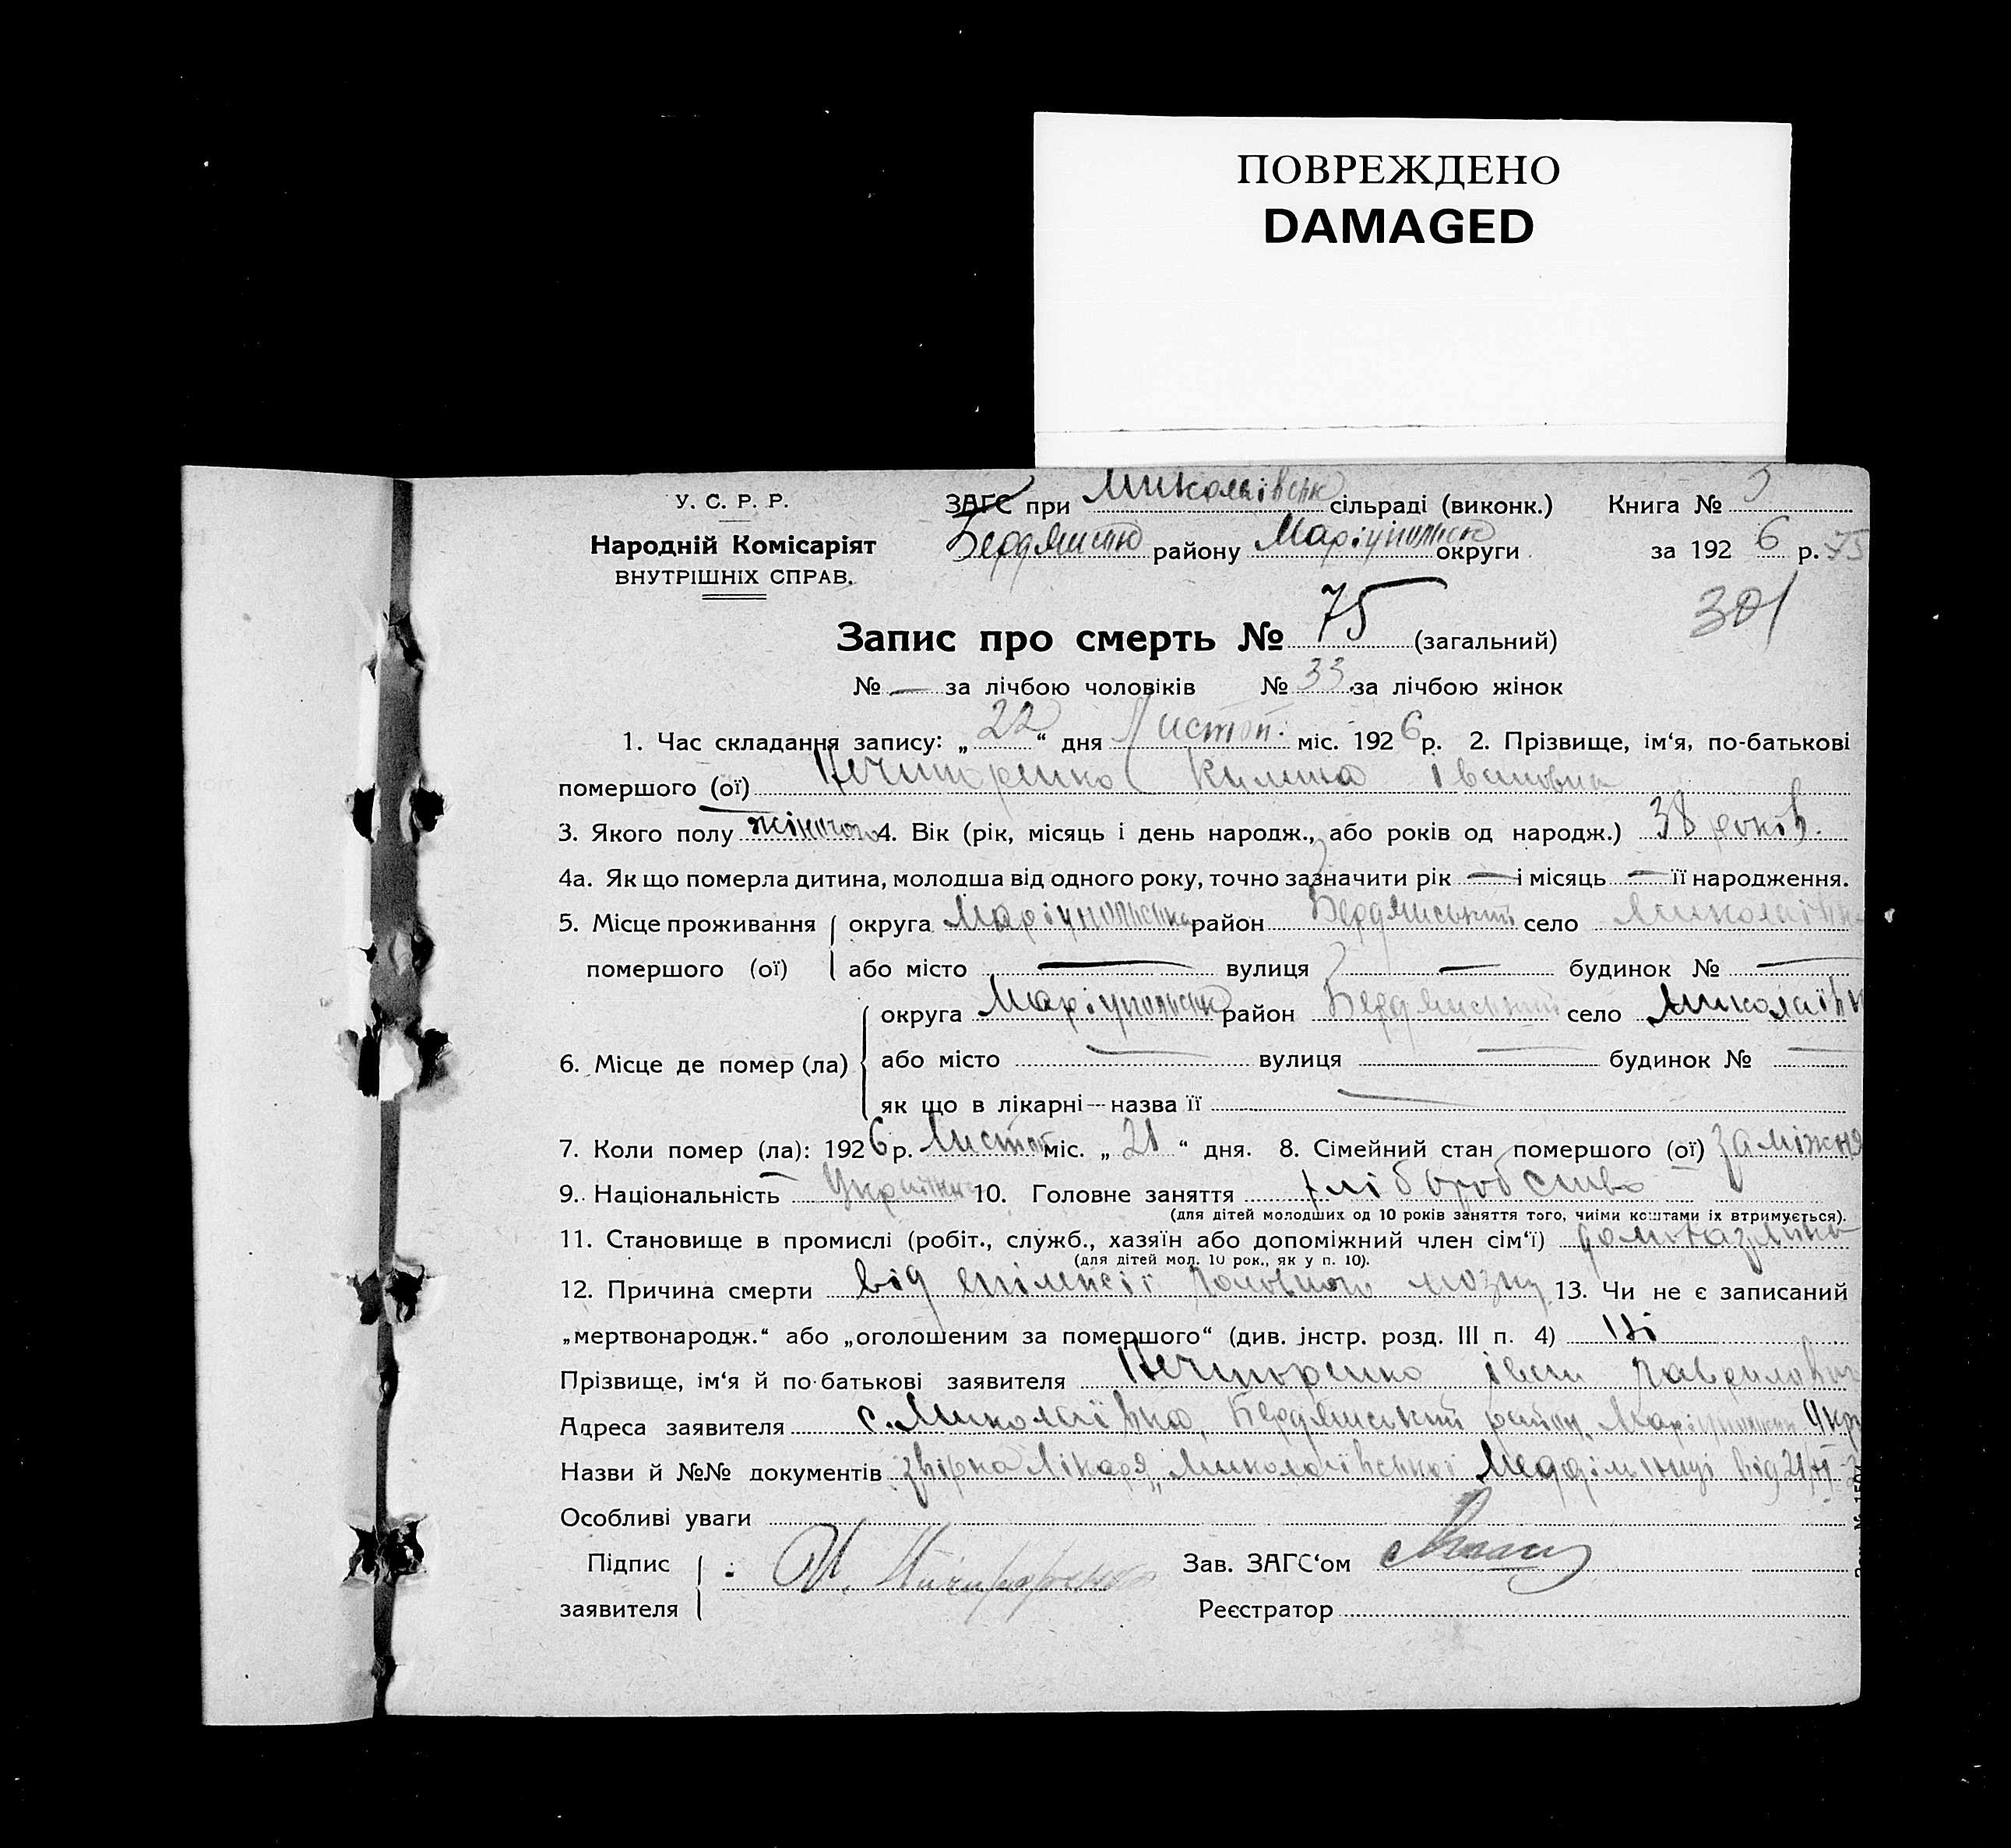 ПОВРЕЖДЕНО
DAMAGED
У. С. Р. Р.
Народній Комісаріят
ВНУТРІШНІХ СПРАВ.
ЗАГС при Миколаївськ сільраді (виконк.) Книга №
Бердянсько району Маріупольсько округи за 1926 р. 75
301
Запис про смерть № 75 (загальний)
№ — за лічбою чоловіків № 33 за лічбою жінок
1. Час складання запису: „22“ дня Листоп. міс. 1926 р. 2. Прізвище, ім‘я, по-батькові
помершого (ої) Нечипоренко Килина Івановна
3. Якого полу жіночого 4. Вік (рік, місяць і день народж., або років од народж.) 38 років.
4а. Як що померла дитина, молодша від одного року, точно зазначити рік — і місяць — її народження.
5. Місце проживання округа Маріупольська район Бердянський село Миколаївк
помершого (ої) або місто — вулиця — будинок № —
округа Маріупольська район Бердянський село Миколаївк
6. Місце де помер (ла) або місто — вулиця — будинок № —
як що в лікарні—назва її —
7. Коли помер (ла): 1926 р. Листоп міс. „21“ дня. 8. Сімейний стан помершого (ої) заміжня
9. Національність Українка 10. Головне заняття хліборобство
(для дітей молодших од 10 років заняття того, чиїми коштами їх втримується).
11. Становище в промислі (робіт., служб., хазяїн або допоміжний член сім‘ї)
(для дітей мол. 10 рок., як у п. 10).
12. Причина смерти від епілепсії головного мозку 13. Чи не є записаний
„мертвонародж.“ або „оголошеним за помершого“ (див. інстр. розд. III п. 4) Ні
Прізвище, ім‘я й по-батькові заявителя Нечипоренко Іван Гаврилович
Адреса заявителя с. Миколаївка, Бердянський район, Маріупольськ Окр
Назви й №№ документів Лікаря Миколаївської від 21/XI
Особливі уваги
Підпис
заявителя И. Ничипоренко
Зав. ЗАГС‘ом
Реєстратор